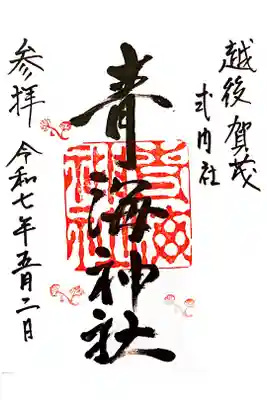 越後賀茂
式内社
青海神社
青海神社
参拝
令和七年五月二日